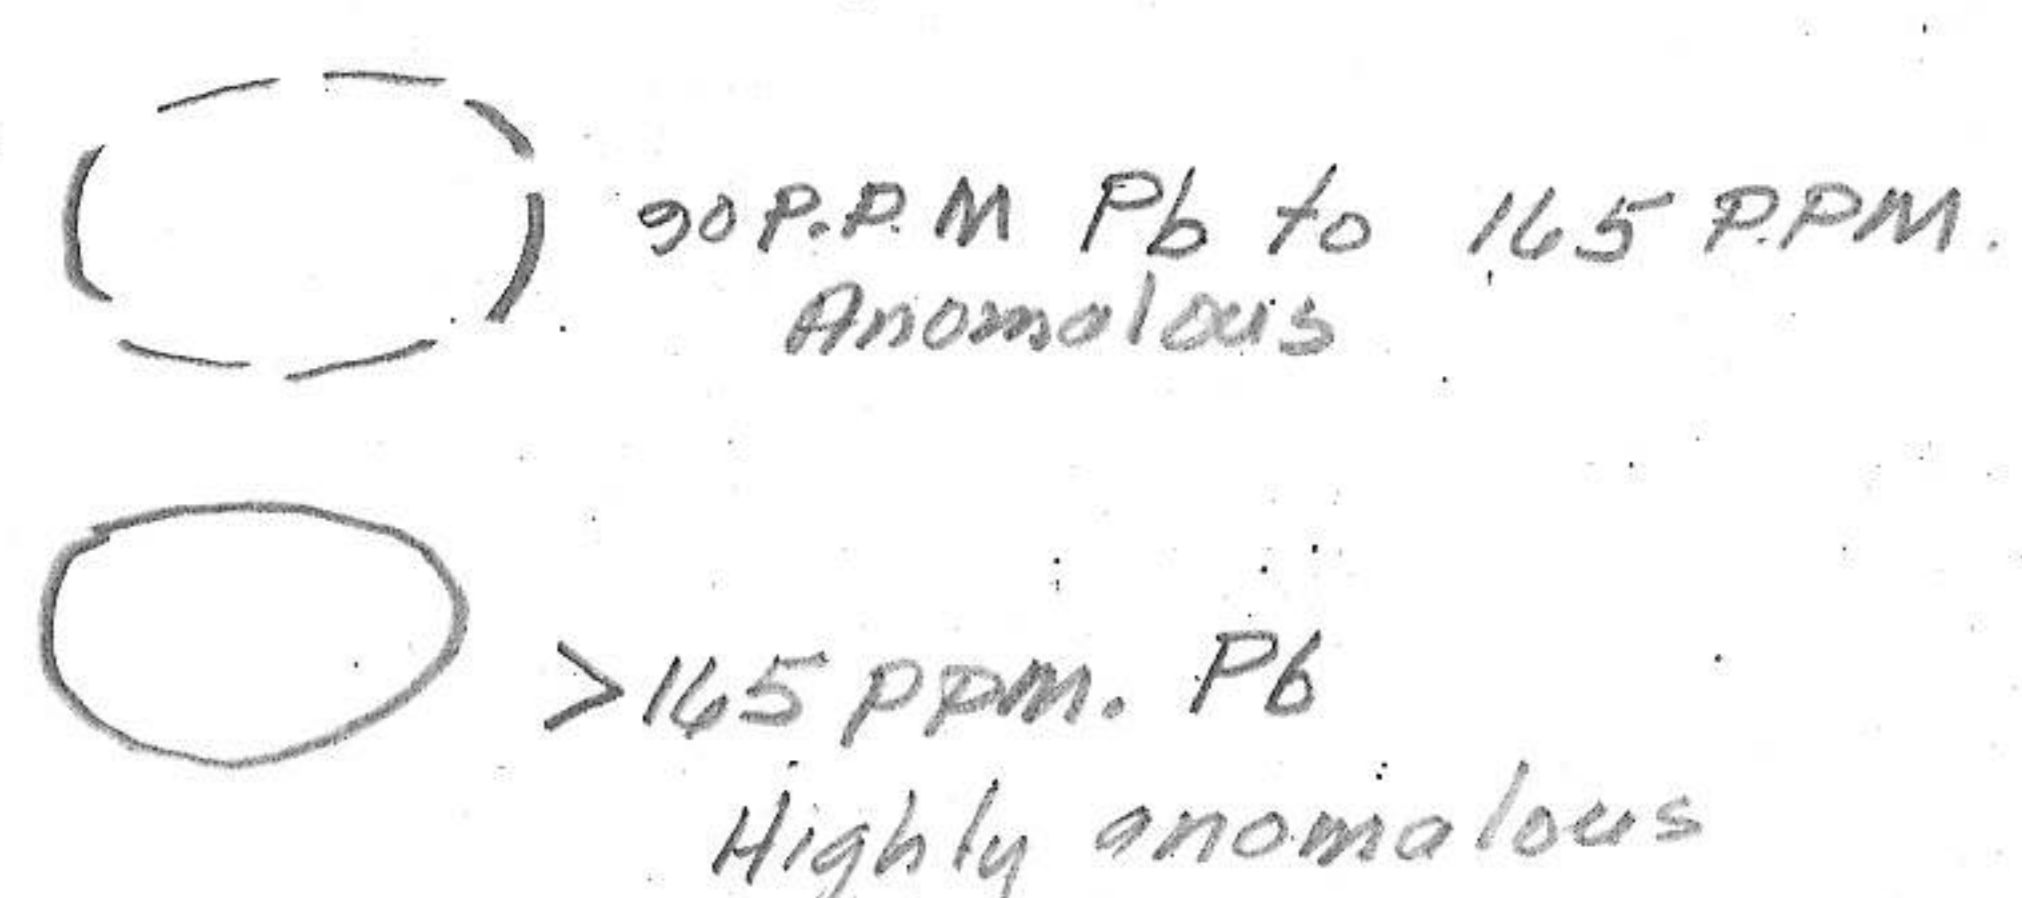 90 P.P.M Pb to 165 P.PM.
Anomalous
>165 ppm. Pb
Highly anomalous